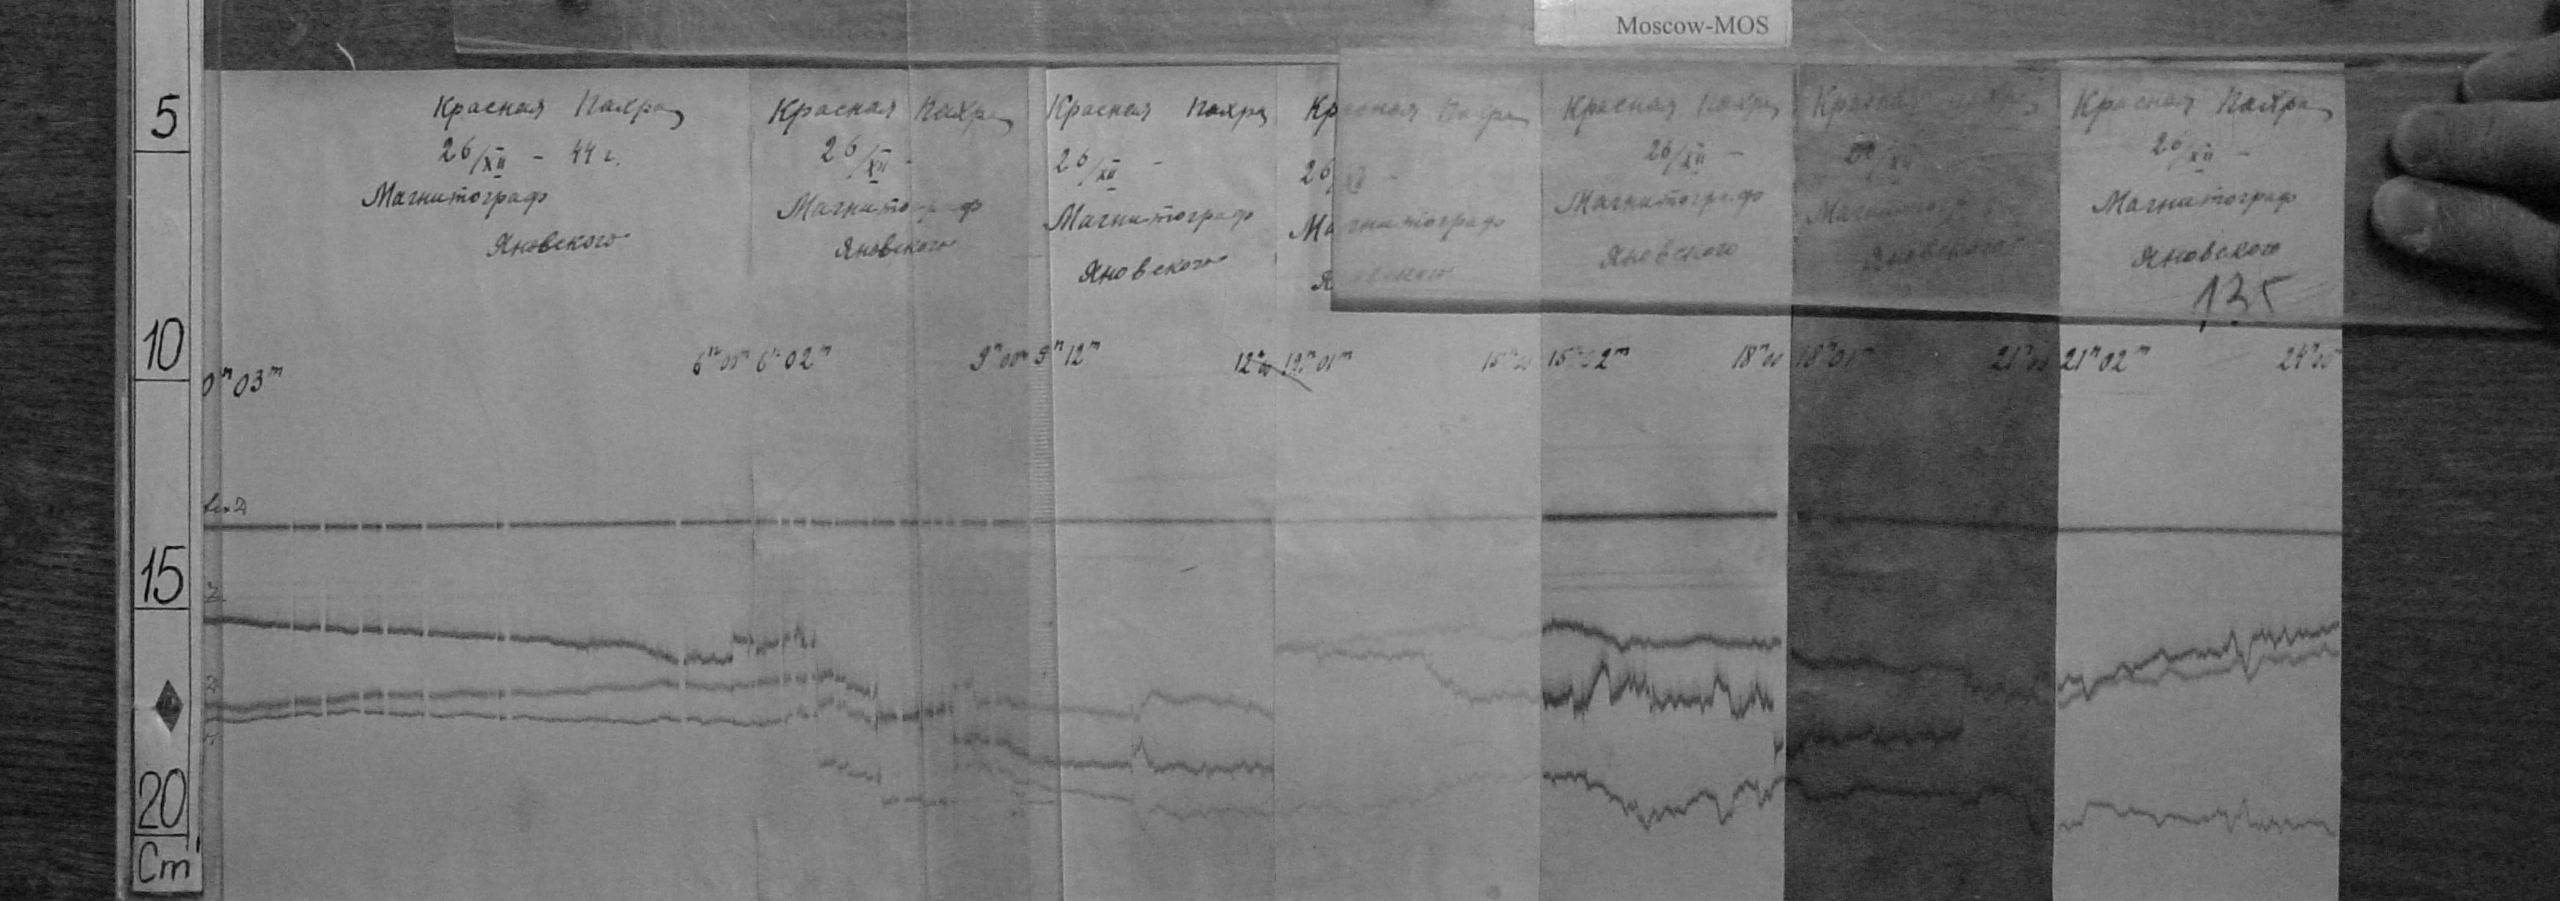 Moscow-MOS
5
10
15
20
Cm
Красная Пахра
26/XII - 44 г.
Магнитограф
Яновского
Красная Пахра
26/XII -
Магнитограф
Яновского
Красная Пахра
26/XII -
Магнитограф
Яновского
Красная Пахра
26/XII -
Магнитограф
Яновского
Красная Пахра
26/XII -
Магнитограф
Яновского
Красная Пахра
26/XII
Магнитограф
Яновского
Красная Пахра
26/XII -
Магнитограф
Яновского
135
0ʰ03ᵐ 6ʰ00ᵐ 6ʰ02ᵐ 9ʰ00ᵐ 9ʰ12ᵐ 12ʰ00 12ʰ01ᵐ 15ʰ00 15ʰ02ᵐ 18ʰ00 18ʰ01ᵐ 21ʰ00 21ʰ02ᵐ 24ʰ00